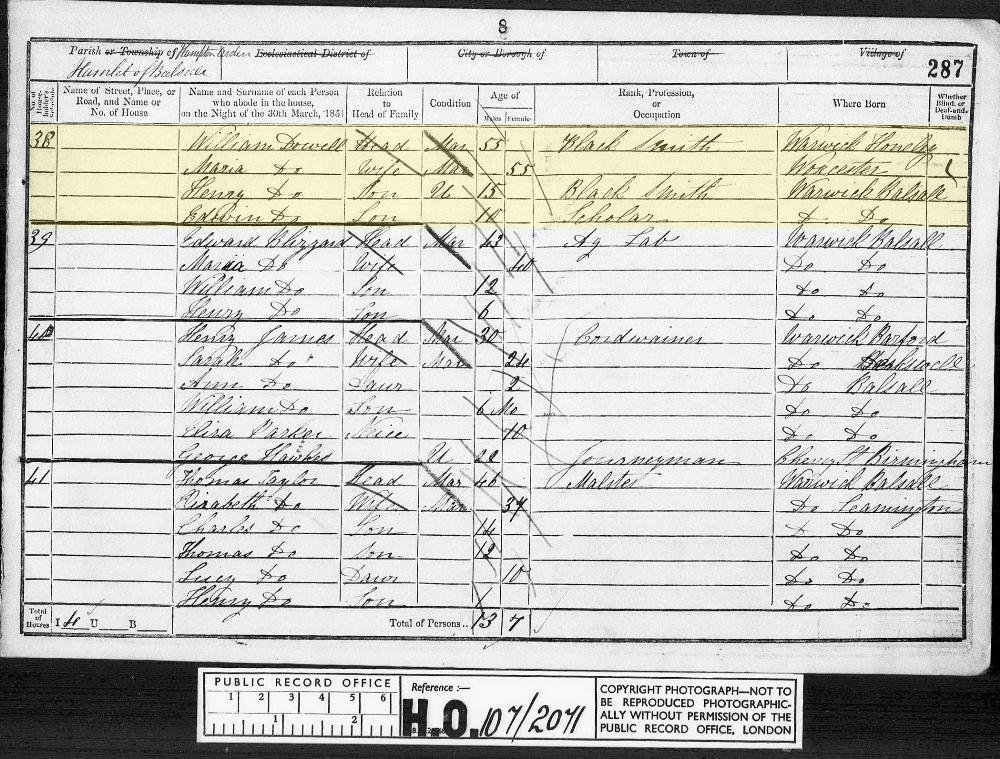 8
Parish or Township of Hampton Arden Ecclesiastical District of City or Borough of Town of Village of
Hamlet of Balsall 287
No. of House-holder's Schedule Name of Street, Place, or Road, and Name or No. of House Name and Surname of each Person who abode in the house, on the Night of the 30th March, 1851 Relation to Head of Family Condition Age of Males Females Rank, Profession, or Occupation Where Born Whether Blind, or Deaf-and-Dumb
38 William Dowell Head Mar 55 Black Smith Warwick Honeley
Maria Do Wife Mar 55 Worcester
Henry Do Son U 15 Black Smith Warwick Balsall
Edwin Do Son 10 Scholar Do Do
39 Edward Blizzard Head Mar 43 Ag Lab Warwick Balsall
Maria Do Wife 40 Do Do
William Do Son 12 Do Do
Henry Do Son 6 Do Do
40 Henry James Head Mar 30 Cordwainer Warwick Barford
Sarah Do Wife Mar 24 Do
Ann Do Daur 2 Do Balsall
William Do Son 6 Mo Do Do
Eliza Parker Niece 10 Do Do
George Hawkes U 22 Journeyman St Birmingham
41 Thomas Taylor Head Mar 46 Malster Warwick Balsall
Elizabeth Do Wife Mar 37 Do Leamington
Charles Do Son 14 Do Do
Thomas Do Son 12 Do Do
Lucy Do Daur 10 Do Do
Henry Do Son 1 Do Do
Total of Houses I 4 U B Total of Persons.. 13 7
PUBLIC RECORD OFFICE
1 2 3 4 5 6
1 2
Reference :—
H.O. 107/2071
COPYRIGHT PHOTOGRAPH—NOT TO
BE REPRODUCED PHOTOGRAPHIC-
ALLY WITHOUT PERMISSION OF THE
PUBLIC RECORD OFFICE, LONDON